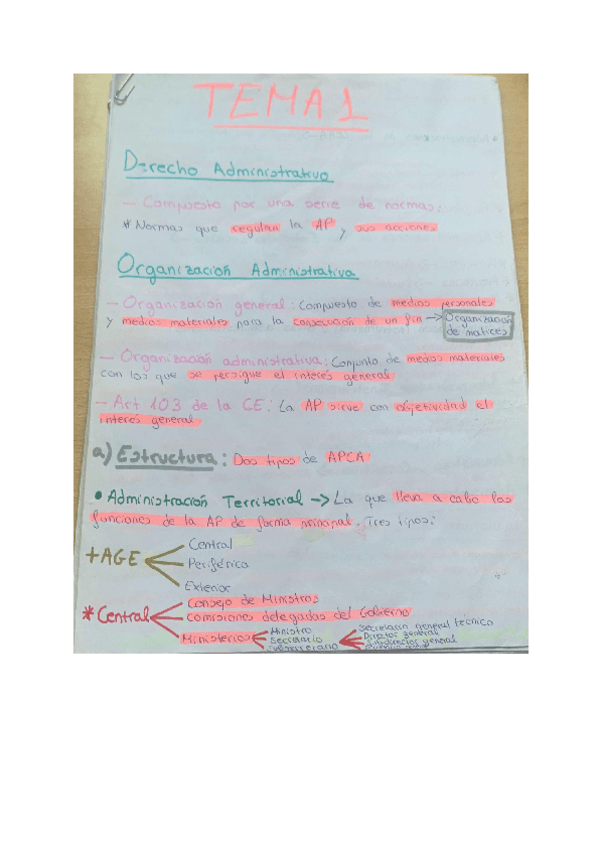 TEMA 1
Derecho Administrativo
- Compuesto por una serie de normas:
* Normas que regulan la AP y sus acciones
Organización Administrativa
- Organización general: Compuesto de medios personales
y medios materiales para la consecución de un fin → Organización
de matices
- Organización administrativa: Conjunto de medios materiales
con los que se persigue el interés general
- Art 103 de la CE: La AP sirve con objetividad el
interés general
a) Estructura: Dos tipos de APCA
• Administración Territorial → La que lleva a cabo las
funciones de la AP de forma principal. Tres tipos:
+ AGE
Central
Periférica
Exterior
* Central
Consejo de Ministros
comisiones delegadas del Gobierno
Ministerios
Ministro
Secretario
Secretaría general técnica
Director general
Subdirector general